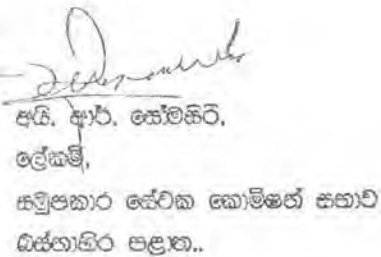 අයි. ආර්. සෝමසිරි,
ලේකම්,
සමුපකාර සේවක කොමිෂන් සභාව
බස්නාහිර පළාත..